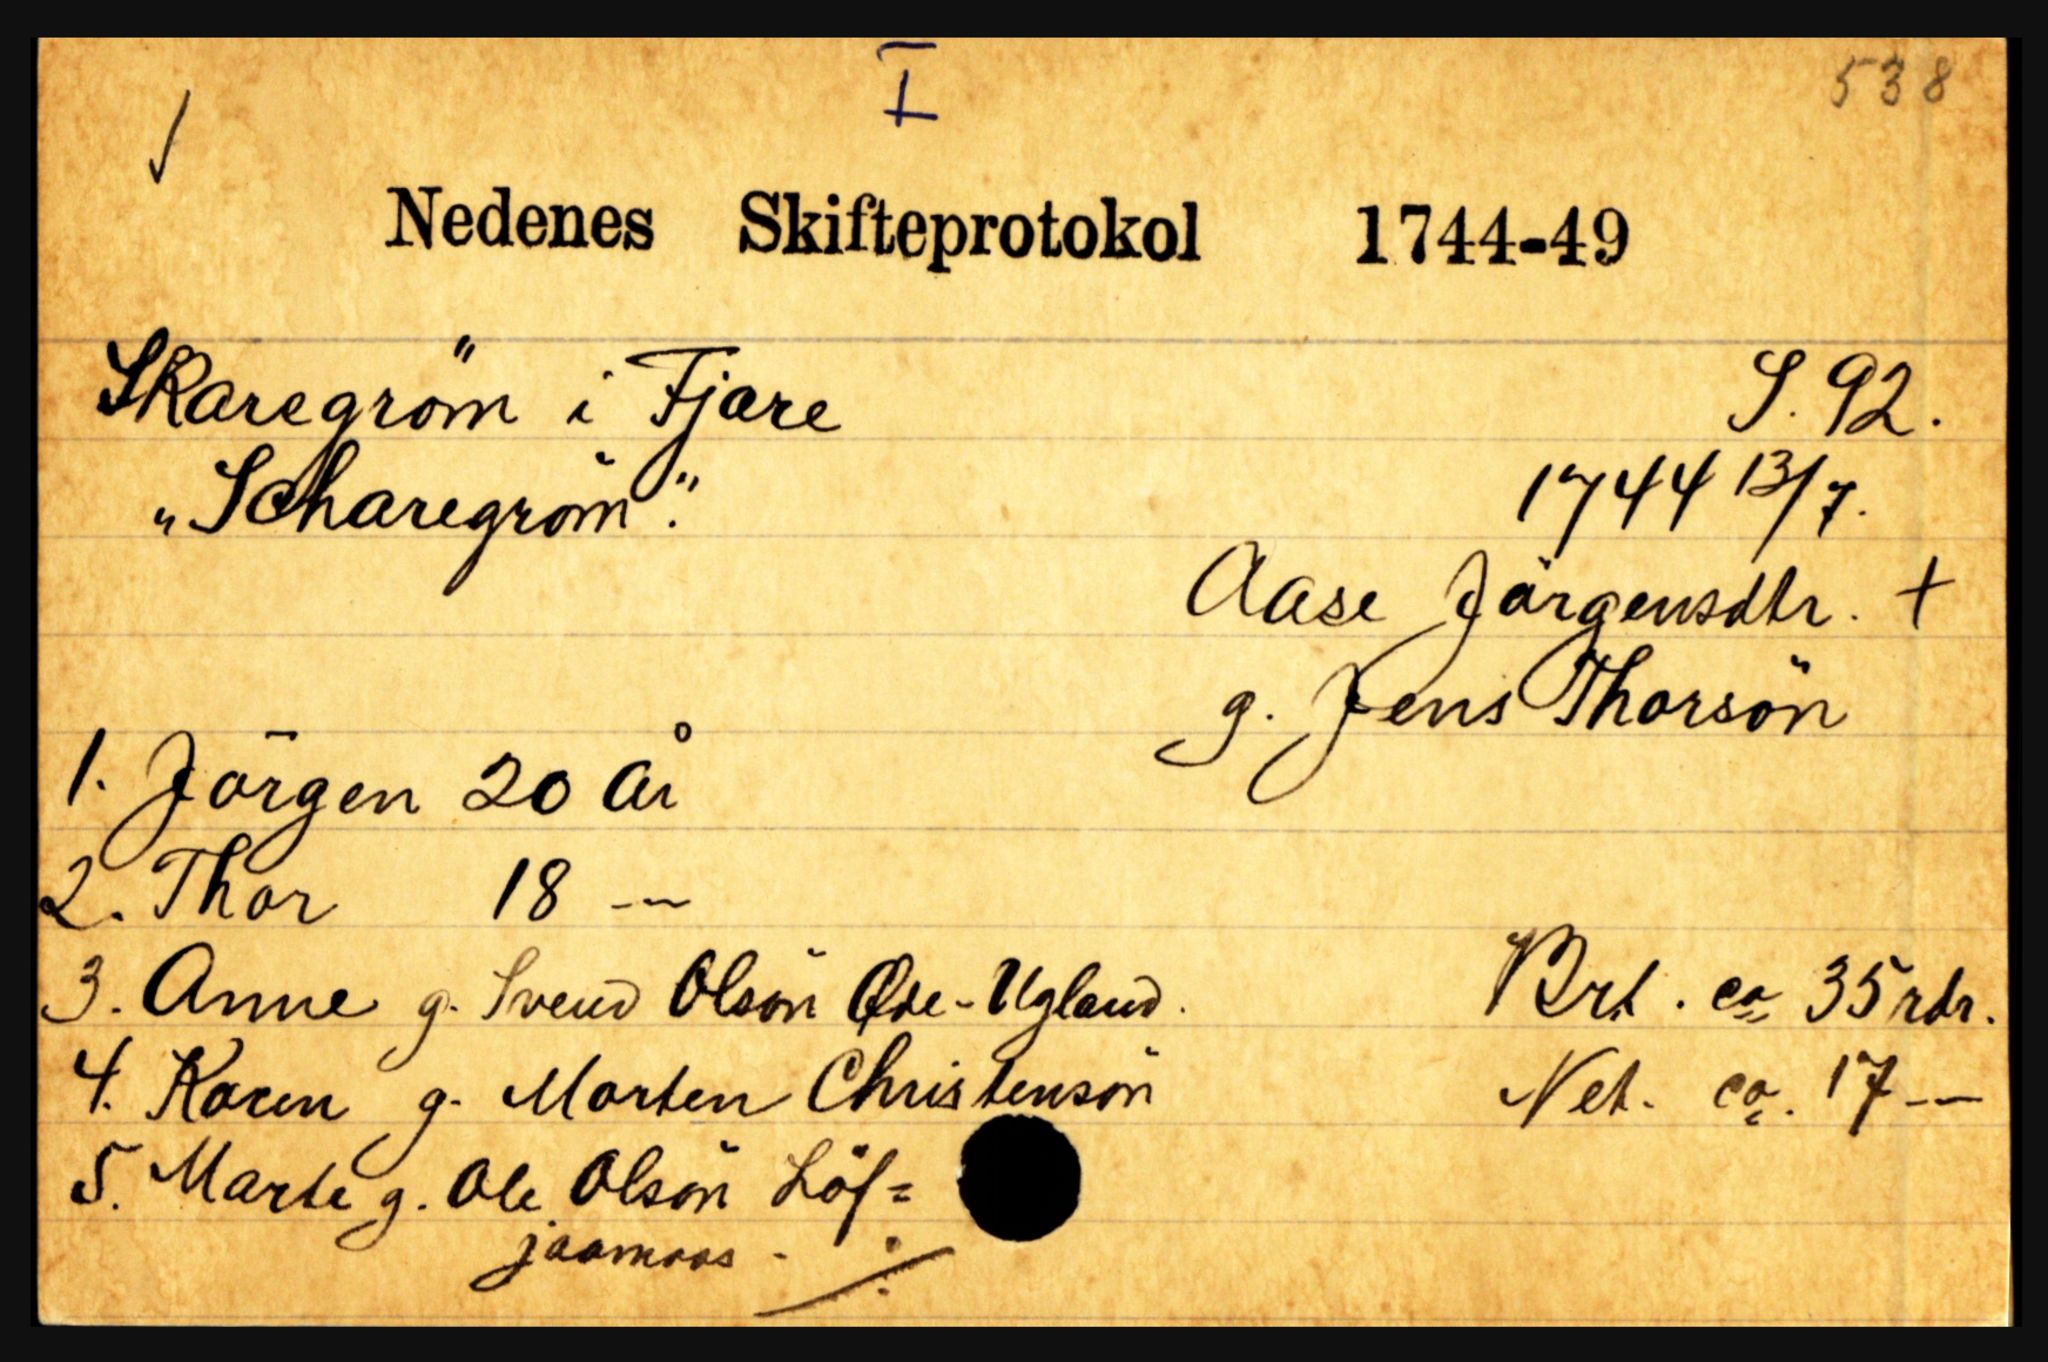 I
538
Nedenes Skifteprotokol 1744-49
Skaregröm i Fjære S. 92.
„Scharegröm". 1744 13/7.
Aase Jörgensdtr. +
g. Jens Thorsön
1. Jörgen 20 år
2. Thor 18 —
3. Anne g. Svend Olsön Øde-Ugland. Brt. ca 35 rdr.
4. Karen g. Morten Christensön Net. ca. 17 —
5. Marte g. Ole Olsön Löf=